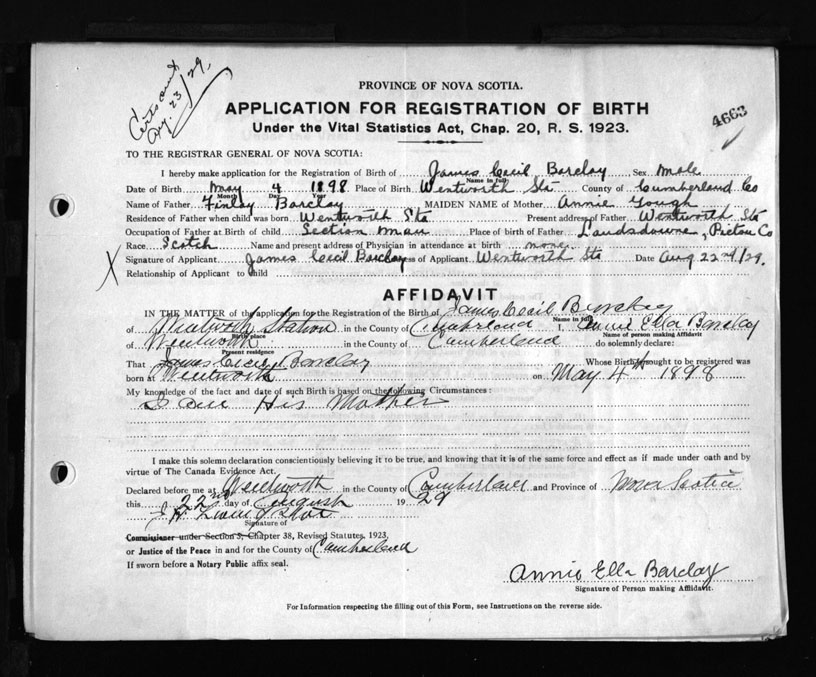 Aug. 23/29,
4663
PROVINCE OF NOVA SCOTIA.
APPLICATION FOR REGISTRATION OF BIRTH
Under the Vital Statistics Act, Chap. 20, R. S. 1923.
TO THE REGISTRAR GENERAL OF NOVA SCOTIA:
I hereby make application for the Registration of Birth of James Cecil Barclay Sex Male
Name in full
Date of Birth May 4 1898 Place of Birth Wentworth Sta County of Cumberland Co
Month Day Year
Name of Father Finlay Barclay MAIDEN NAME of Mother Annie Gough
Residence of Father when child was born Wentworth Sta Present address of Father Wentworth Sta
Occupation of Father at Birth of child Section man Place of birth of Father Landsdowne, Pictou Co
Race Scotch Name and present address of Physician in attendance at birth none.
X Signature of Applicant James Cecil Barclay ess of Applicant Wentworth Sta Date Aug 22nd/29.
Relationship of Applicant to Child
AFFIDAVIT
IN THE MATTER of the application for the Registration of the Birth of James Cecil Barclay
Name in full
of Wentworth Station in the County of Cumberland I, Annie Ella Barclay
Birth place Name of person making Affidavit
of Wentworth in the County of Cumberland do solemnly declare:
Present residence
That James Cecil Barclay Whose Birth sought to be registered was
born at Wentworth on May 4th 1898
My knowledge of the fact and date of such Birth is based on the following Circumstances:
I am His Mother
I make this solemn declaration conscientiously believing it to be true, and knowing that it is of the same force and effect as if made under oath and by
virtue of The Canada Evidence Act.
Declared before me at Wentworth in the County of Cumberland and Province of Nova Scotia
this 22nd day of August 1929
Signature of
Commissioner under Section 3, Chapter 38, Revised Statutes, 1923,
or Justice of the Peace in and for the County of Cumberland
If sworn before a Notary Public affix seal.
Annie Ella Barclay
Signature of Person making Affidavit.
For Information respecting the filling out of this Form, see Instructions on the reverse side.